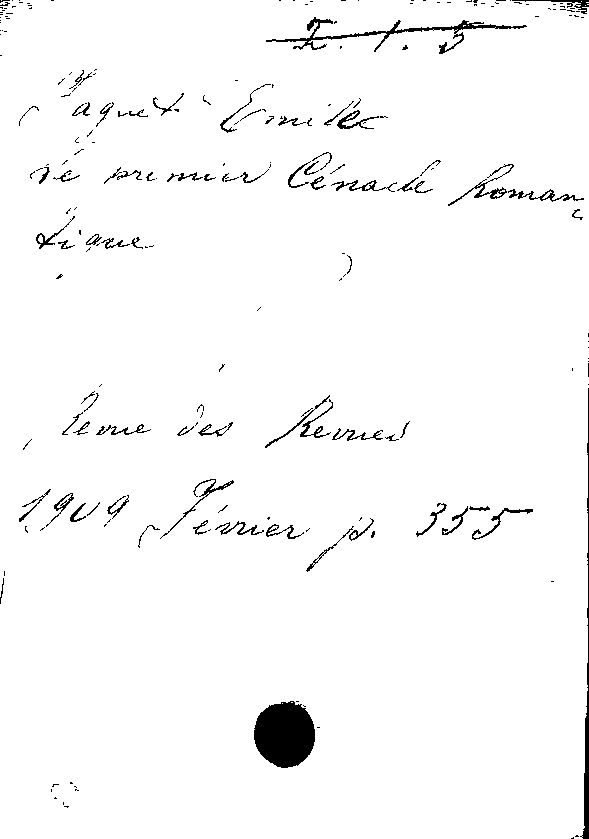 Z. 1. 5
Faguet Emile
le premier Cénacle Roman-
tique
Revue des Revues
1909 Février p. 355